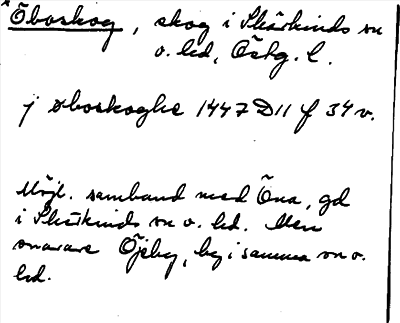 Öboskog, skog i Skärkinds sn
o. hd, Östg. l.
j øboskoghe 1447 D11 f 34 v.
Möjl. samband med Öna, gd
i Skärkinds sn o. hd. Men
snarare Öjeby, by i samma sn o.
hd.